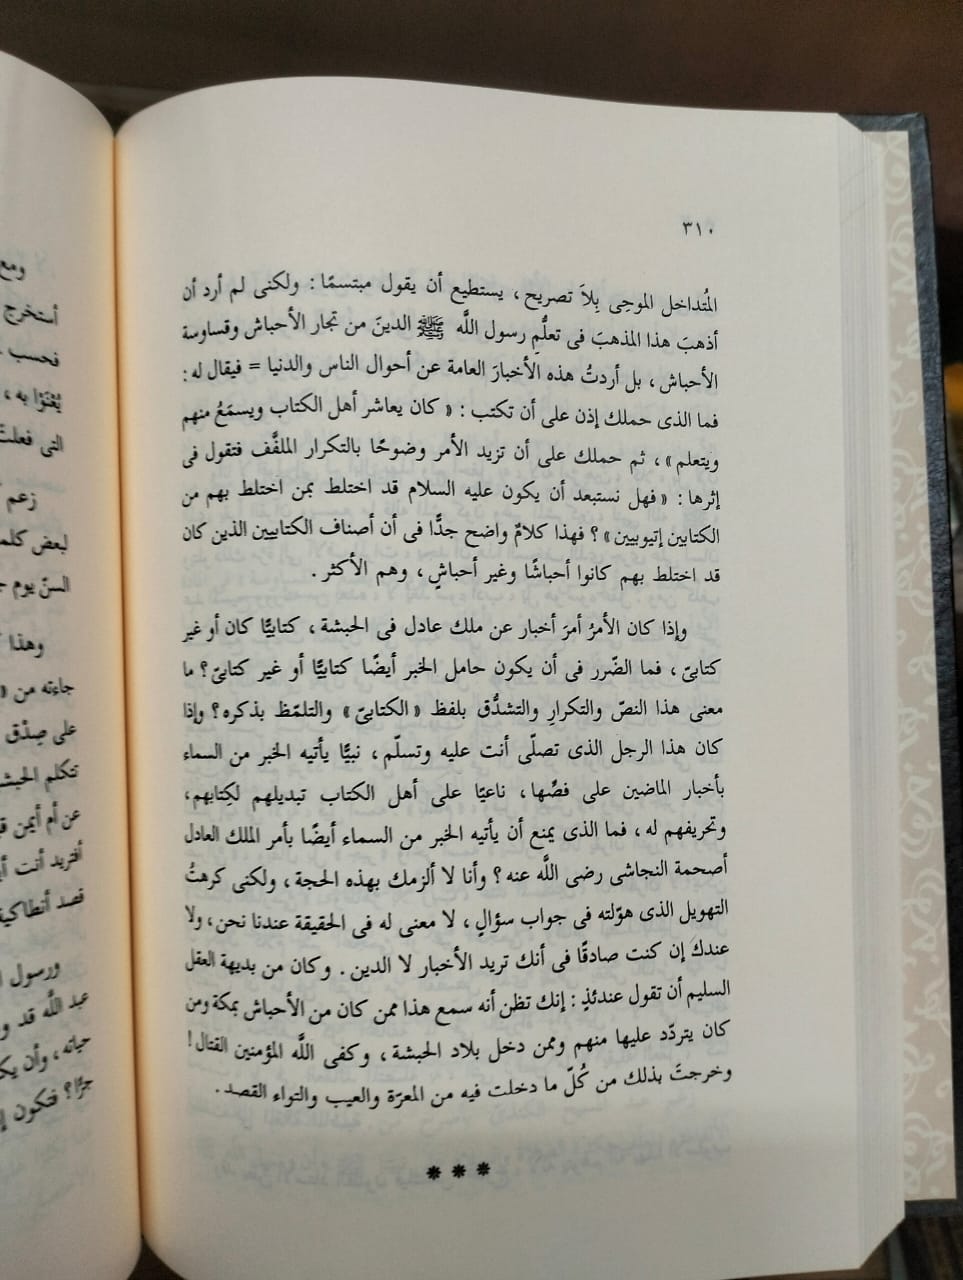 ٣١٠
المُتداخل الموحِى بِلاَ تصريح، يستطيع أن يقول مبتسمًا: ولكنى لم أرد أن
أذهبَ هذا المذهبَ فى تعلُّمِ رسول اللَّه ﷺ الدينَ من تجار الأحباش وقساوسة
الأحباش، بل أردتُ هذه الأخبارَ العامة عن أحوال الناس والدنيا = فيقال له:
فما الذى حملك إذن على أن تكتب: « كان يعاشر أهل الكتاب ويسمَعُ منهم
ويتعلم»، ثم حملك على أن تزيد الأمر وضوحًا بالتكرار الملفَّف فتقول فى
إثرها: « فهل نستبعد أن يكون عليه السلام قد اختلط بمن اختلط بهم من
الكتابين إتيوبيين»؟ فهذا كلامٌ واضح جدًّا فى أن أصناف الكتابيين الذين كان
قد اختلط بهم كانوا أحباشًا وغير أحباشٍ، وهم الأكثر.
وإذا كان الأمرُ أمرَ أخبار عن ملك عادل فى الحبشة، كتابيًّا كان أو غير
كتابىّ، فما الضّرر فى أن يكون حامل الخبر أيضًا كتابيًّا أو غير كتابىّ؟ ما
معنى هذا النصّ والتكرارِ والتشدُّق بلفظ « الكتابىّ » والتلمّظ بذكره؟ وإذا
كان هذا الرجل الذى تصلّى أنت عليه وتسلّم، نبيًّا يأتيه الخبر من السماء
بأخبار الماضين على فصِّها، ناعيًا على أهل الكتاب تبديلهم لكِتابهم،
وتحريفهم له، فما الذى يمنع أن يأتيه الخبر من السماء أيضًا بأمر الملك العادل
أصحمة النجاشى رضى اللَّه عنه؟ وأنا لا ألزمك بهذه الحجة، ولكنى كرهتُ
التهويل الذى هوّلته فى جواب سؤالٍ، لا معنى له فى الحقيقة عندنا نحن، ولا
عندك إن كنت صادقًا فى أنك تريد الأخبار لا الدين. وكان من بديهة العقل
السليم أن تقول عندئذٍ: إنك تظن أنه سمع هذا ممن كان من الأحباش بمكة ومن
كان يتردّد عليها منهم وممن دخل بلاد الحبشة، وكفى اللَّه المؤمنين القتال!
وخرجتَ بذلك من كُلّ ما دخلت فيه من المعرّة والعيب والتواء القصد.
* * *
ومع
أستخرج
فحسب
يُعْنَوْا به،
التى فعلت
زعم
لبعض كلم
السنّ يوم
وهذا
جاءته من
على صِدْق
تتكلم الحبش
عن أم أيمن
أفتريد أنت
قصد أنطاكية
ورسول
عبد اللَّه قد
حياته، وأن
جرًّا؟ فتكون